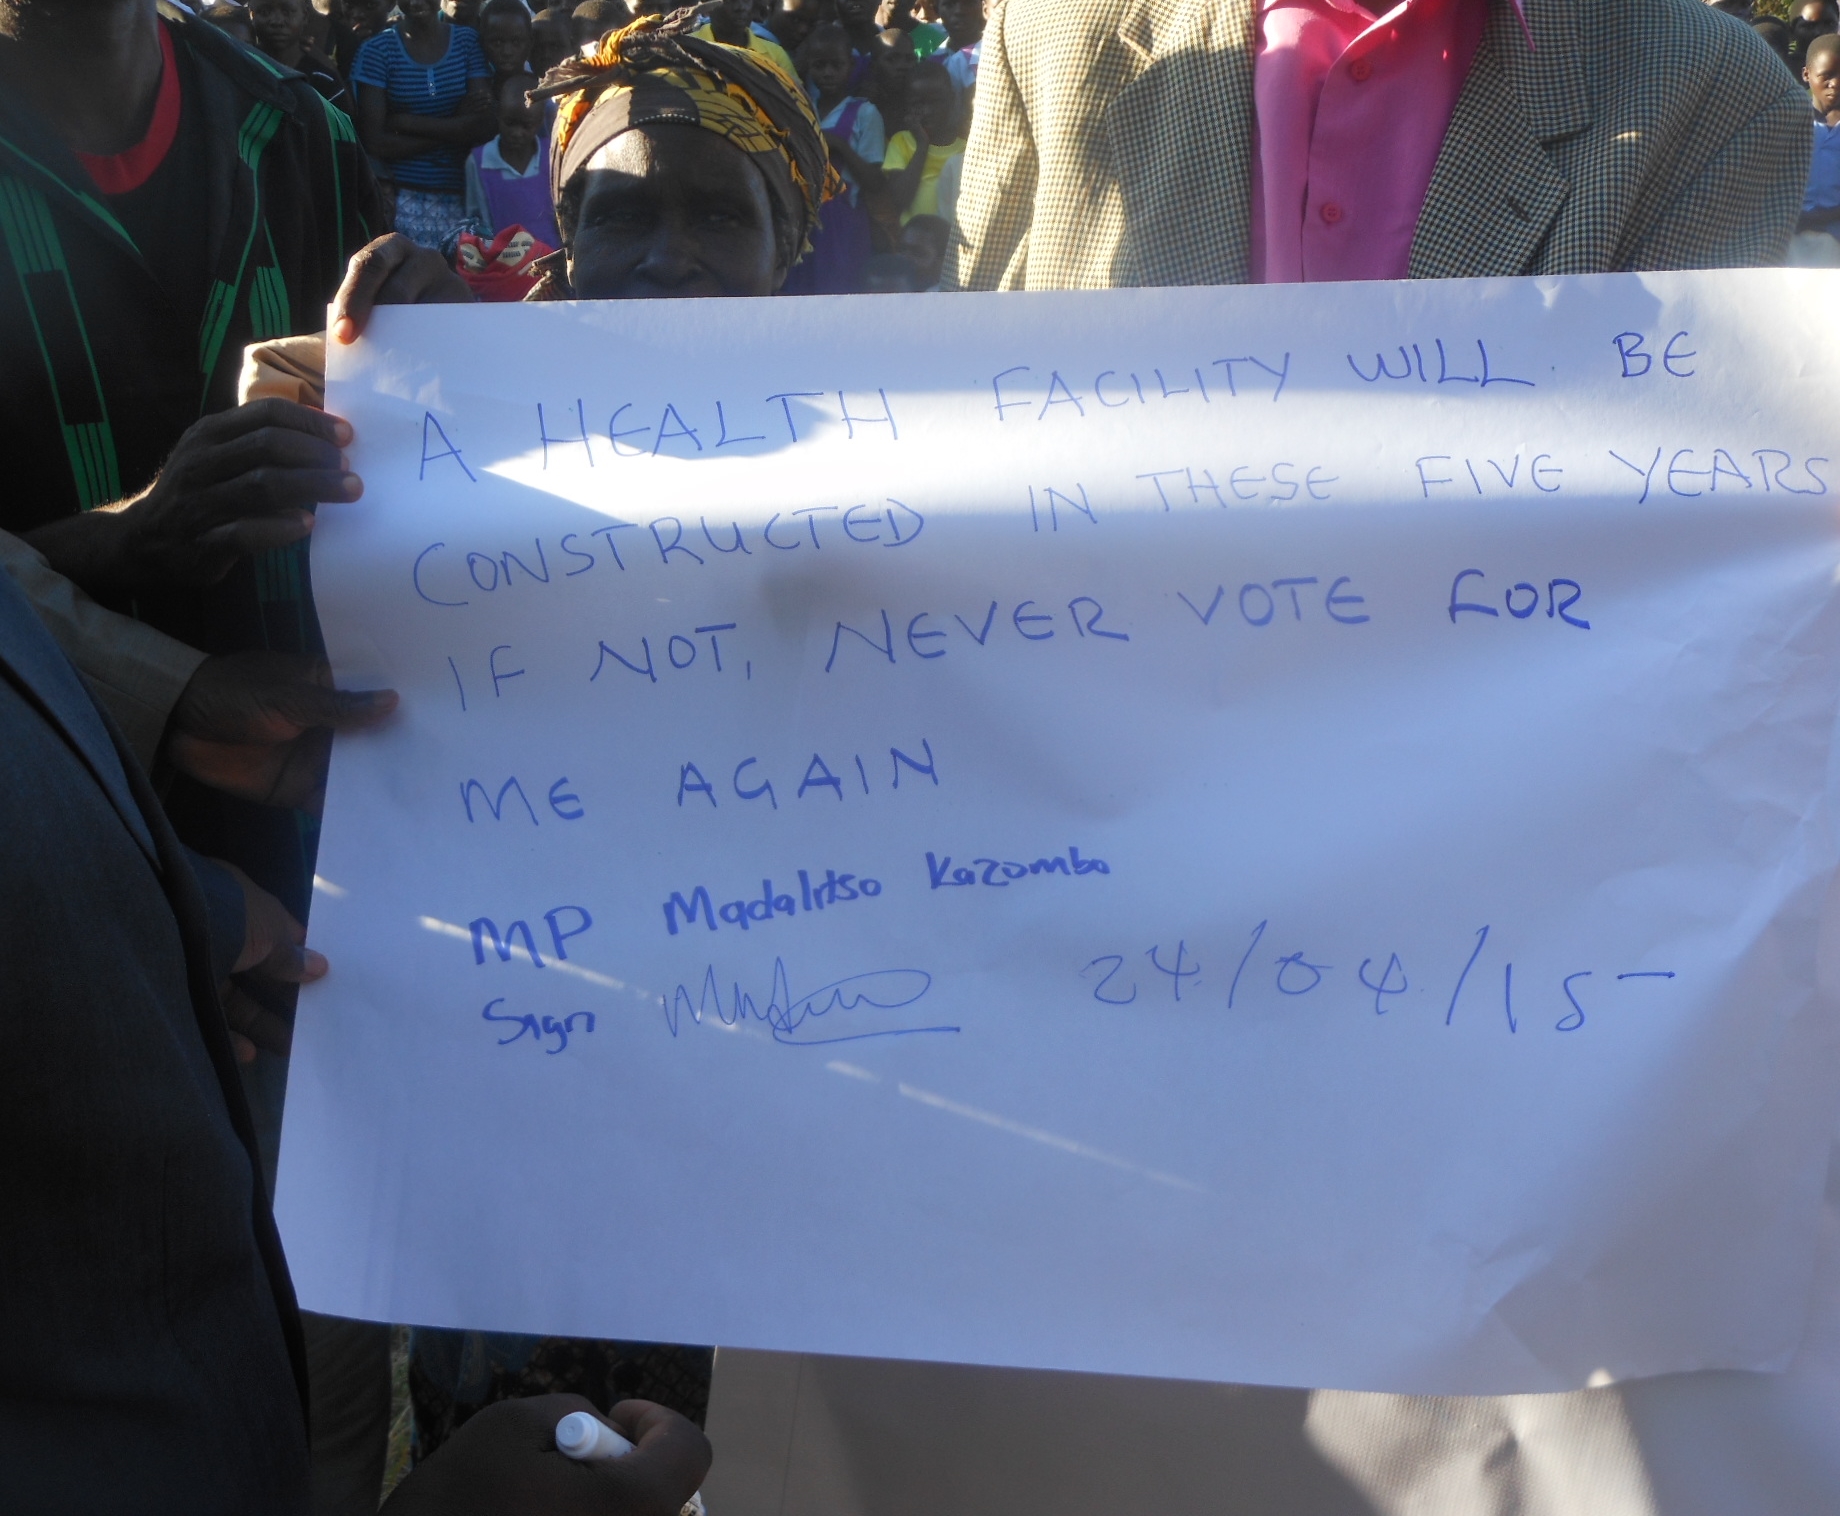 A HEALTH FACILITY WILL BE
CONSTRUCTED IN THESE FIVE YEARS
IF NOT, NEVER VOTE FOR
ME AGAIN
MP Madalitso Kazombo
Sign 24/04/15